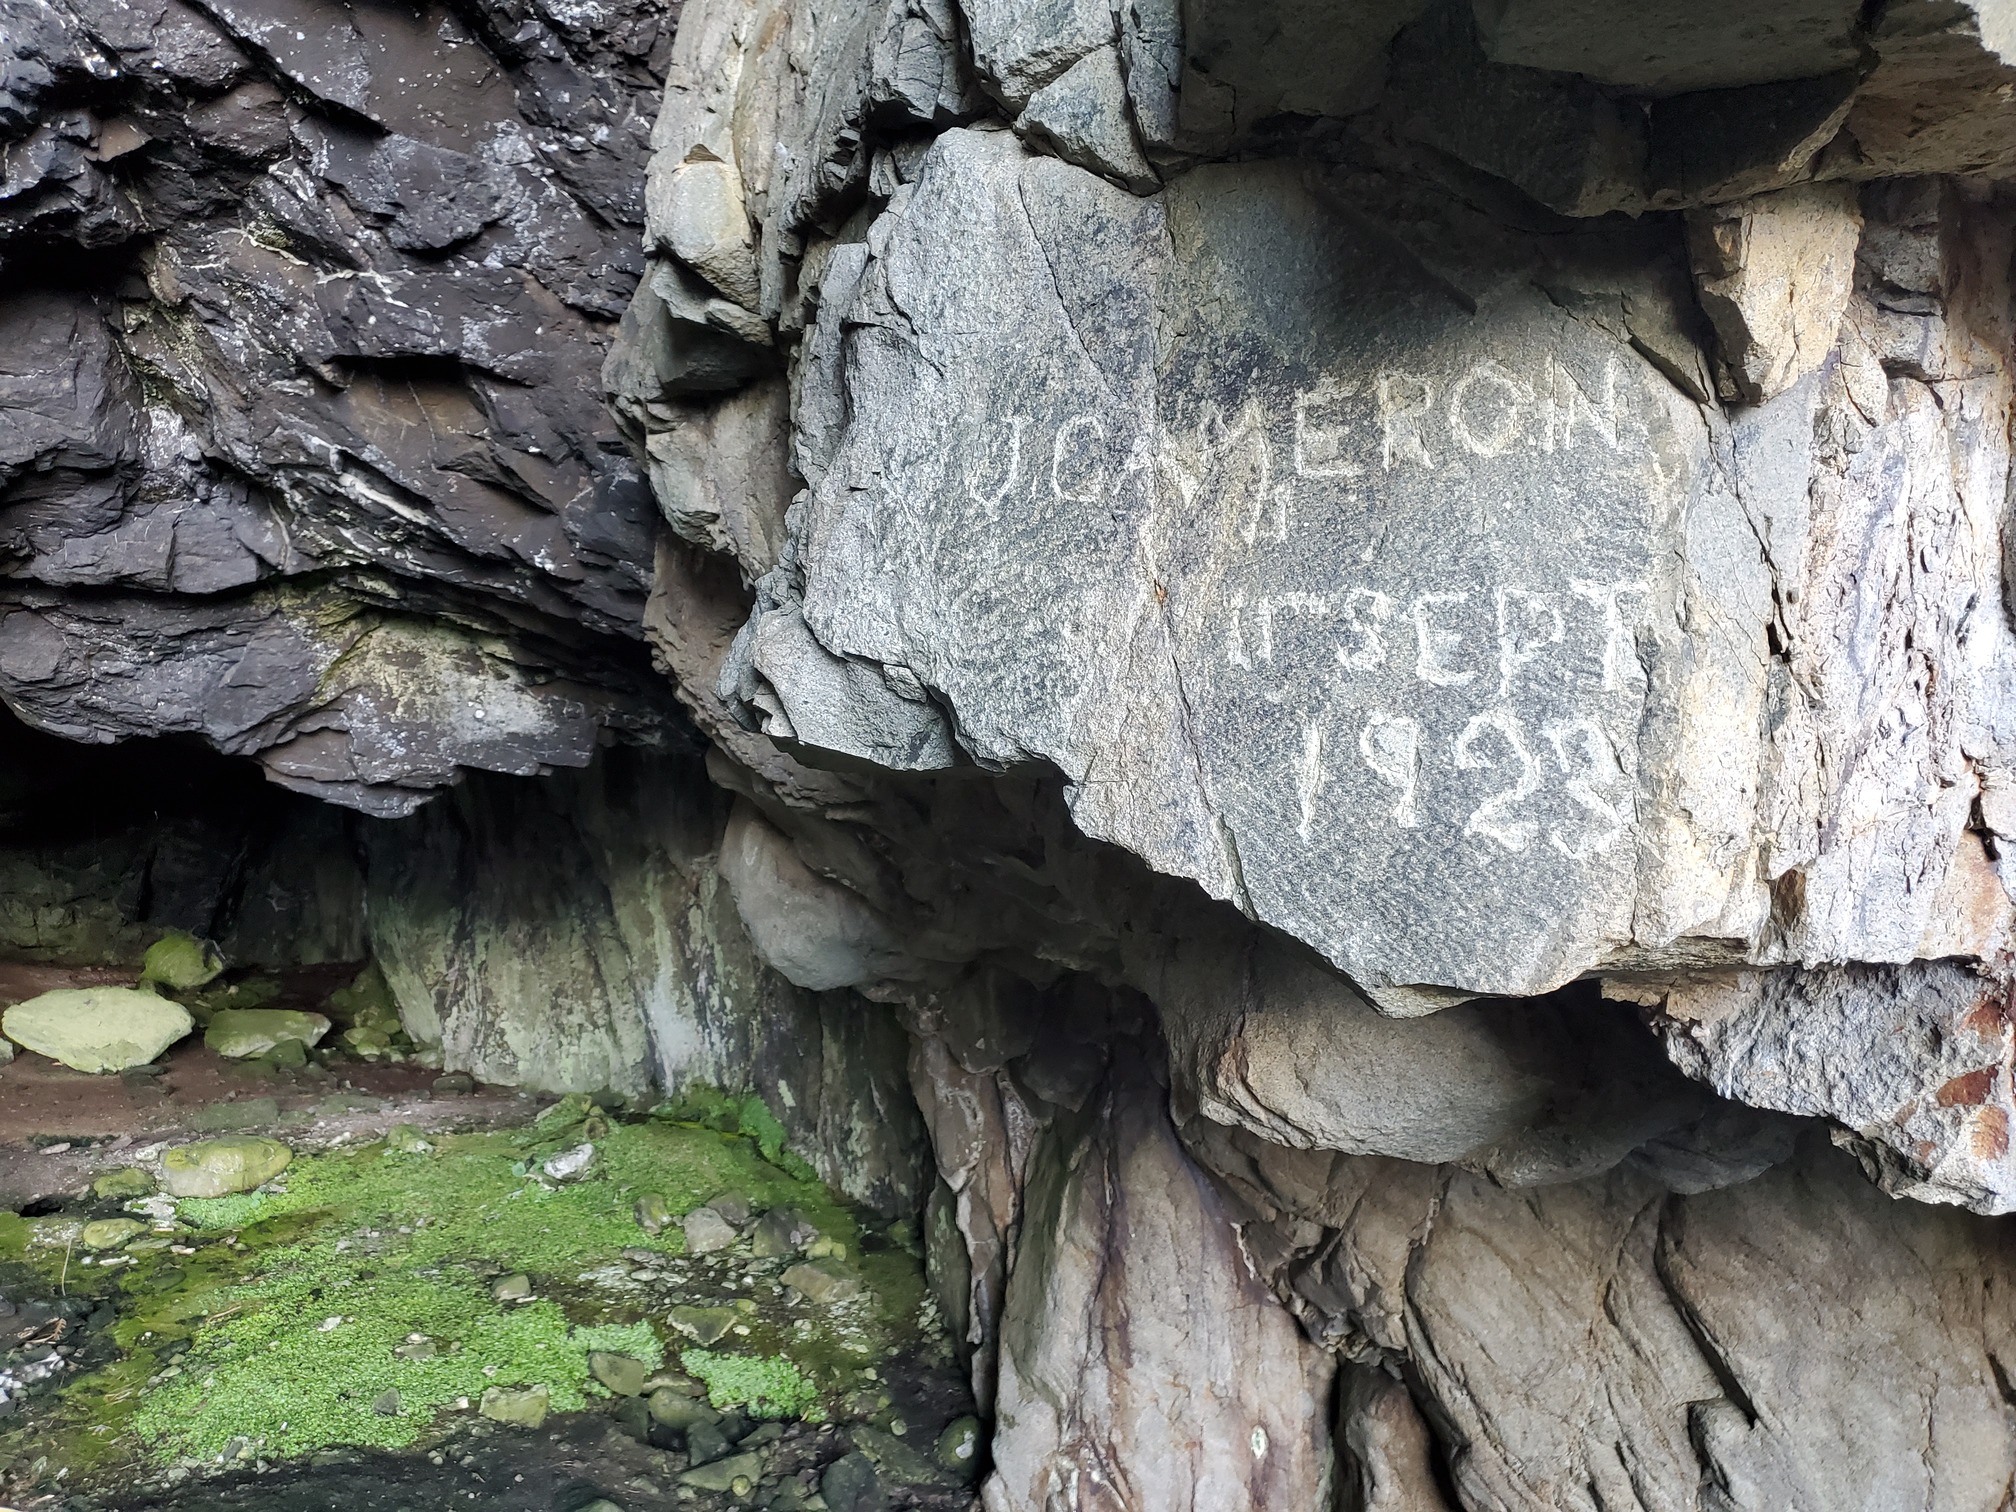 J. CAMERON
SEPT
1923